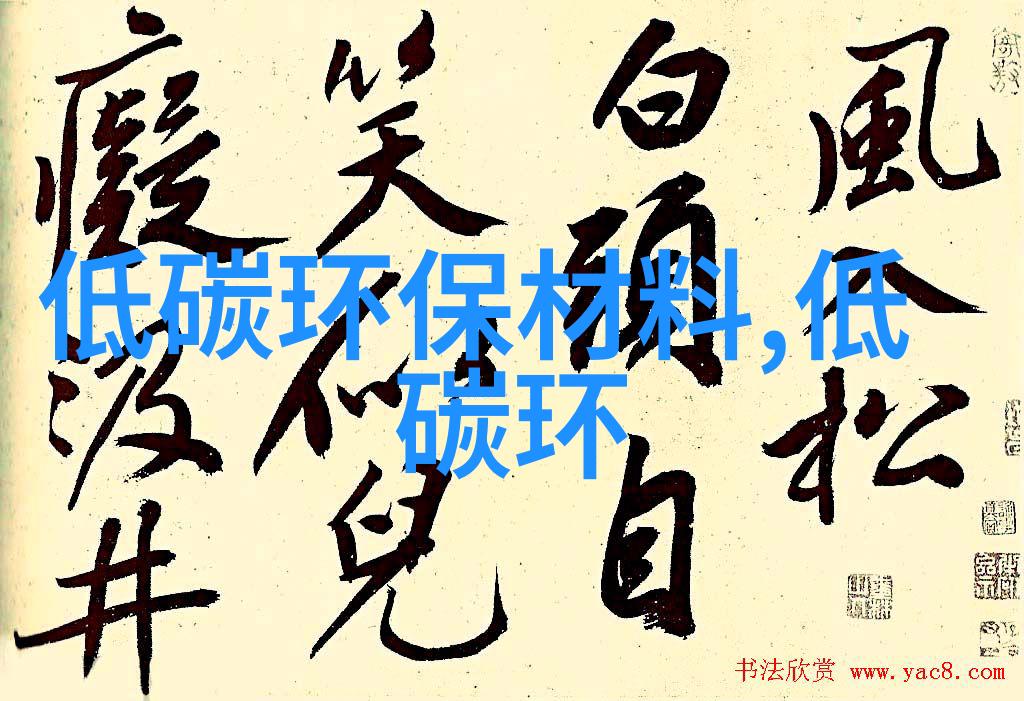 風入松
白頭自
笑似兒
癡汲井
低碳环保材料,低
碳环
书法欣赏 www.yac8.com